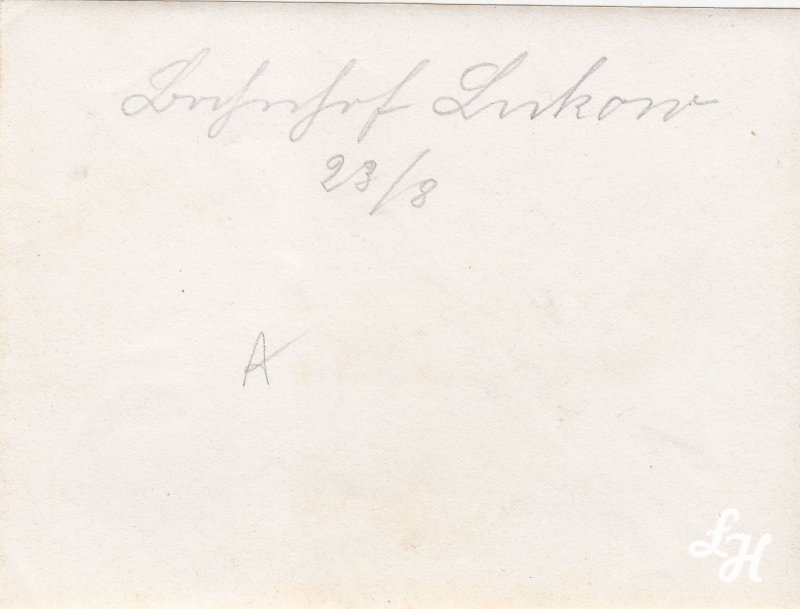 Bahnhof Lukow
23/8
A
LH